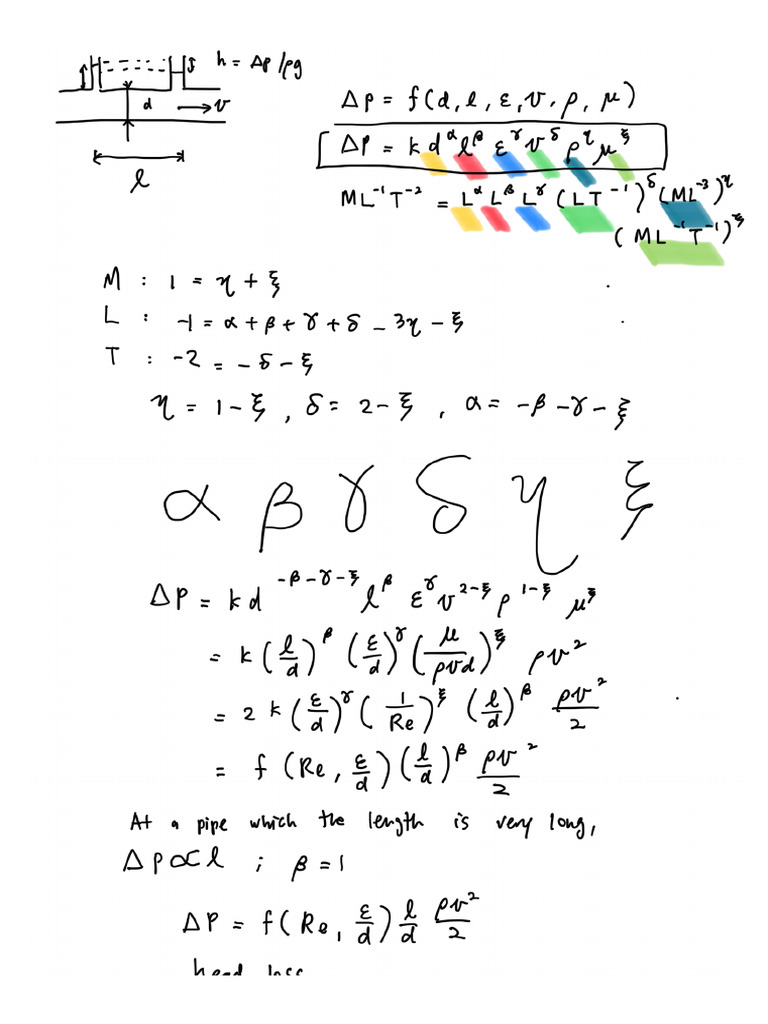 h = Δp/ρg
d
v
l
Δp = f(d, l, ε, v, ρ, μ)
Δp = k d^α l^β ε^γ v^δ ρ^η μ^ξ
ML^-1 T^-2 = L^α L^β L^γ (LT^-1)^δ (ML^-3)^η
(ML^-1 T^-1)^ξ
M : 1 = η + ξ
L : -1 = α + β + γ + δ - 3η - ξ
T : -2 = -δ - ξ
η = 1 - ξ , δ = 2 - ξ , α = -β - γ - ξ
α β γ δ η ξ
Δp = k d^(-β-γ-ξ) l^β ε^γ v^(2-ξ) ρ^(1-ξ) μ^ξ
= k (l/d)^β (ε/d)^γ (μ/ρvd)^ξ ρv^2
= 2 k (ε/d)^γ (1/Re)^ξ (l/d)^β ρv^2/2
= f (Re, ε/d) (l/d)^β ρv^2/2
At a pipe which the length is very long,
Δp ∝ l ; β = 1
Δp = f(Re, ε/d) l/d ρv^2/2